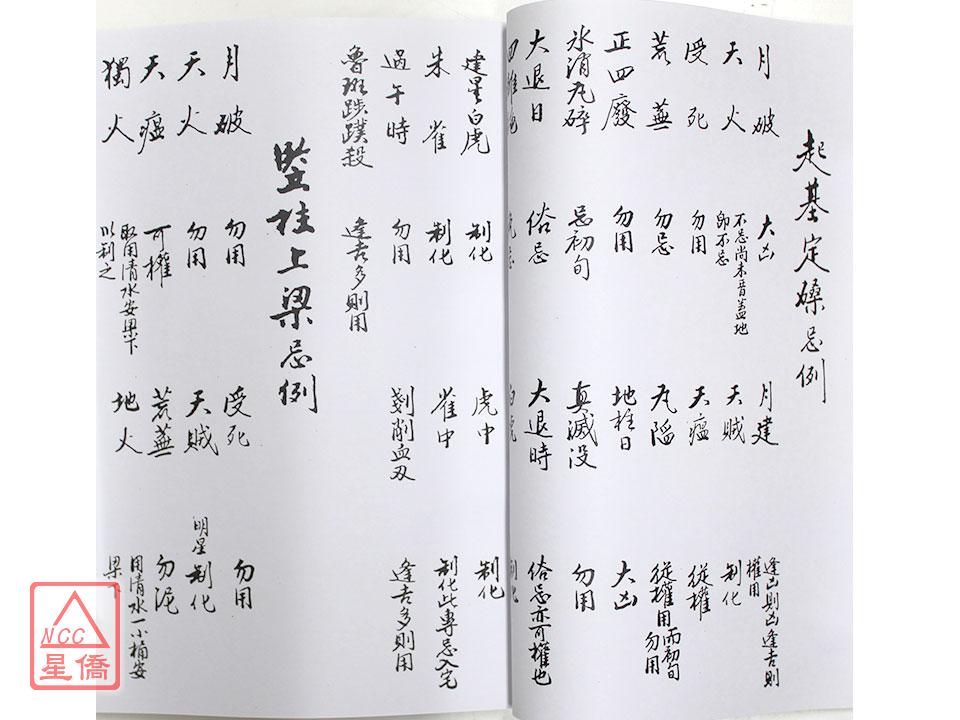 起基定磉忌例
月破 大凶 月建 逢凶則凶逢吉則權用
天火 不忌尚未音蓋地即不忌 天賊 制化
受死 勿用 天瘟 從權
荒蕪 勿忌 九 從權用而初旬勿用
正四廢 勿用 地柱日 大凶
冰消瓦碎 忌初旬 真滅没 勿用
大退日 俗忌 大退時 俗忌亦可權也
建星白虎 制化 虎中 制化
朱雀 制化 雀中 制化此專忌入宅
過午時 勿用 剗削血刃 逢吉多則用
魯班跌蹼殺 逢吉多則用
豎柱上梁忌例
月破 勿用 受死 勿用
天火 勿用 天賊 明星制化
天瘟 可權 荒蕪 勿泥
獨火 取用清水安梁下以制之 地火 用清水一小桶安梁下
NCC
星僑